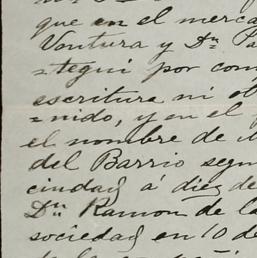 que en el merca
Ventura y Dn Pa
=tegui por com
escritura ni o
=nido, y en el
el nombre de
del Barrio segun
ciudad á diez de
Dn Ramon de la
sociedad en 10 de